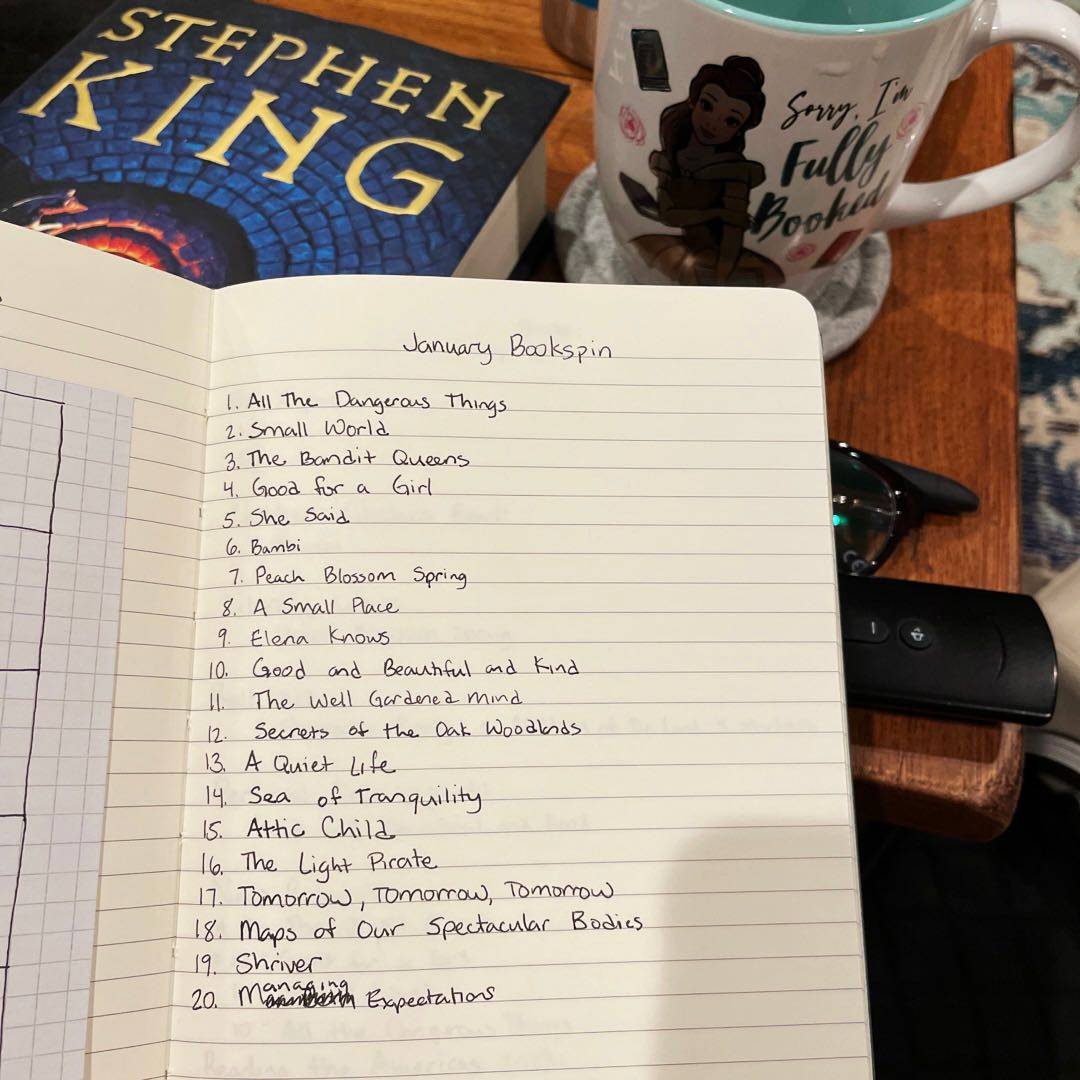 STEPHEN
KING
Sorry, I'm
Fully
Booked
January Bookspin
1. All The Dangerous Things
2. Small World
3. The Bandit Queens
4. Good for a Girl
5. She Said
6. Bambi
7. Peach Blossom Spring
8. A Small Place
9. Elena Knows
10. Good and Beautiful and Kind
11. The Well Gardened Mind
12. Secrets of the Oak Woodlands
13. A Quiet Life
14. Sea of Tranquility
15. Attic Child
16. The Light Pirate
17. Tomorrow, Tomorrow, Tomorrow
18. Maps of Our Spectacular Bodies
19. Shriver
20. Managing Expectations